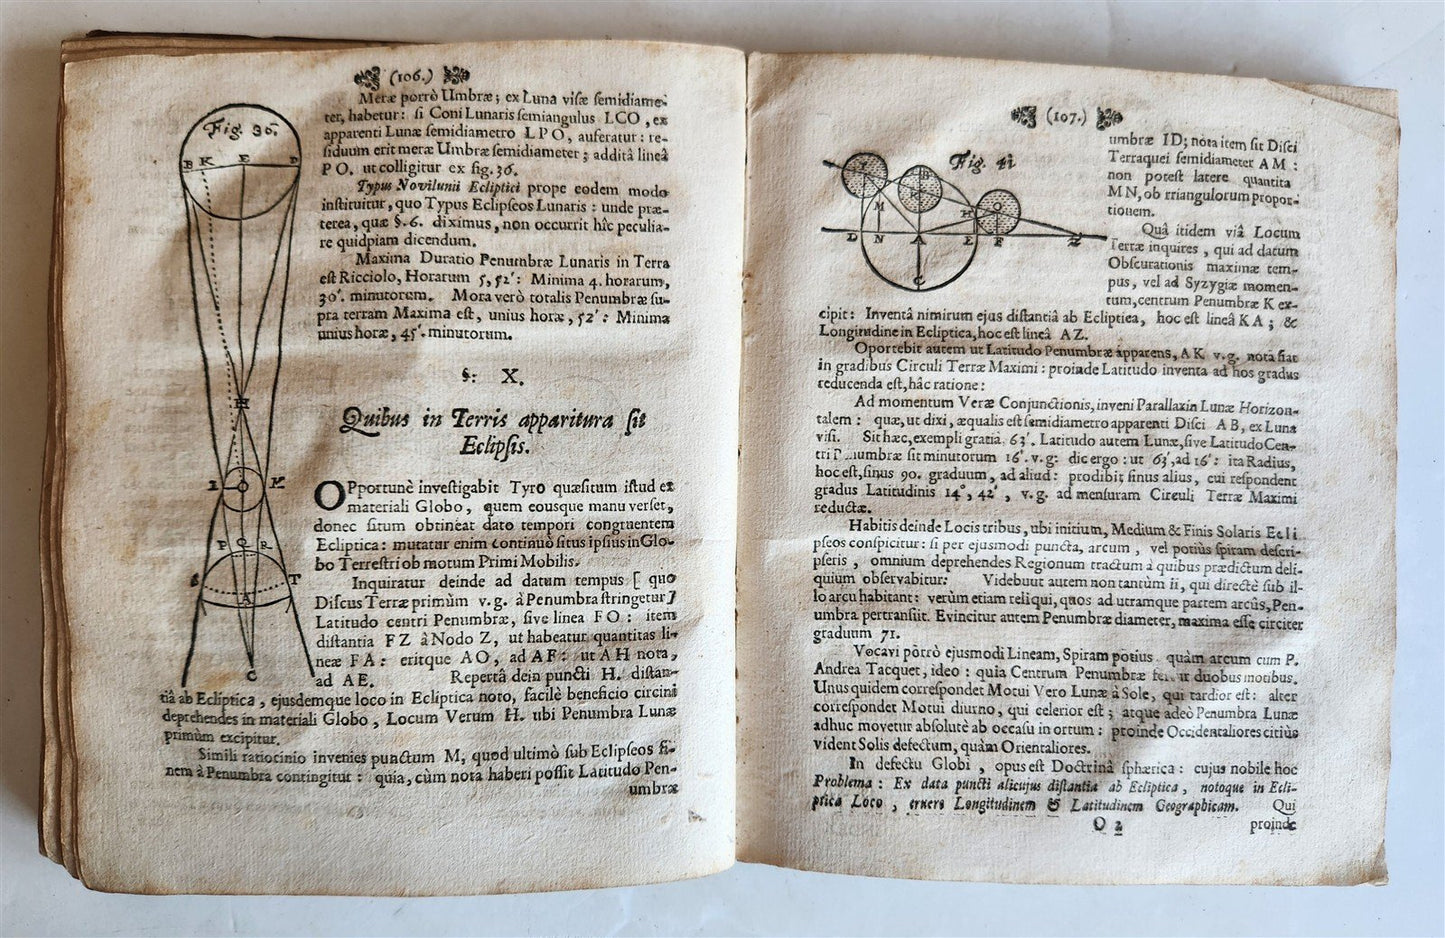 (106.)
Fig. 36.
B K E D
H
I O K
P O R
S T
A
C
Meræ porrò Umbræ; ex Luna visæ semidiame-
ter, habetur: si Coni Lunaris semiangulus LCO, ex
apparenti Lunæ semidiametro LPO, auferatur: re-
siduum erit meræ Umbræ semidiameter; additâ lineâ
PO. ut colligitur ex fig. 36.
Typus Novilunii Ecliptici prope eodem modo
instituitur, quo Typus Eclipseos Lunaris: unde præ-
terea, quæ §. 6. diximus, non occurrit hîc peculia-
re quidpiam dicendum.
Maxima Duratio Penumbræ Lunaris in Terra
est Ricciolo, Horarum 5, 52': Minima 4. horarum,
30'. minutorum. Mora verò totalis Penumbræ su-
pra terram Maxima est, unius horæ, 52': Minima
unius horæ, 45'. minutorum.
§: X.
Quibus in Terris apparitura sit
Eclipsis.
OPportunè investigabit Tyro quæsitum istud ex
materiali Globo, quem eousque manu verset,
donec situm obtineat dato tempori congruentem
Eclipticæ: mutatur enim continuò situs ipsius in Glo-
bo Terrestri ob motum Primi Mobilis.
Inquiratur deinde ad datum tempus [ quo
Discus Terræ primùm v.g. à Penumbra stringetur ]
Latitudo centri Penumbræ, sive linea FO: item
distantia FZ à Nodo Z, ut habeatur quantitas li-
neæ FA: eritque AO, ad AF: ut AH nota,
ad AE. Repertâ dein puncti H. distan-
tiâ ab Ecliptica, ejusdemque loco in Ecliptica noto, facilè beneficio circini
deprehendes in materiali Globo, Locum Verum H. ubi Penumbra Lunæ
primùm excipitur.
Simili ratiocinio invenies punctum M, quod ultimò sub Eclipseos fi-
nem à Penumbra contingitur: quia, cùm nota haberi possit Latitudo Pen-
umbræ
(107.)
Fig. 41
I B K O
M H
D N A E F Z
C
umbræ ID; nota item sit Disci
Terraquei semidiameter AM:
non potest latere quantitas
MN, ob triangulorum propor-
tionem.
Quâ itidem viâ Locum
Terræ inquires, qui ad datum
Obscurationis maximæ tem-
pus, vel ad Syzygiæ momen-
tum, centrum Penumbræ K ex-
cipit: Inventâ nimirum ejus distantiâ ab Ecliptica, hoc est lineâ KA; &
Longitudine in Ecliptica, hoc est lineâ AZ.
Oportebit autem ut Latitudo Penumbræ apparens, AK v.g. nota fiat
in gradibus Circuli Terræ Maximi: proinde Latitudo inventa ad hos gradus
reducenda est, hâc ratione:
Ad momentum Veræ Conjunctionis, inveni Parallaxin Lunæ Horizon-
talem: quæ, ut dixi, æqualis est semidiametro apparenti Disci AB, ex Luna
visi. Sit hæc, exempli gratiâ, 63'. Latitudo autem Lunæ, sive Latitudo Cen-
tri Penumbræ sit minutorum 16'. v.g: dic ergo: ut 63', ad 16': ita Radius,
hoc est, sinus 90. graduum, ad aliud: prodibit sinus alius, cui respondent
gradus Latitudinis 14°, 42', v.g. ad mensuram Circuli Terræ Maximi
reductæ.
Habitis deinde Locis tribus, ubi initium, Medium & Finis Solaris Ecli
pseos conspicitur: si per ejusmodi puncta, arcum, vel potiùs spiram descri-
pseris, omnium deprehendes Regionum tractum à quibus prædictum deli-
quium observabitur: Videbunt autem non tantùm ii, qui directè sub il-
lo arcu habitant: verùm etiam reliqui, quos ad utramque partem arcûs, Pen-
umbra pertransiit. Evincitur autem Penumbræ diameter, maxima esse circiter
graduum 71.
Vocavi pòrrò ejusmodi Lineam, Spiram potiùs quàm arcum cum P.
Andrea Tacquet, ideo: quia Centrum Penumbræ fertur duobus motibus.
Unus quidem correspondet Motui Vero Lunæ à Sole, qui tardior est: alter
correspondet Motui diurno, qui celerior est; atque adeò Penumbra Lunæ
adhuc movetur absolutè ab occasu in ortum: proinde Occidentaliores citiùs
vident Solis defectum, quàm Orientaliores.
In defectu Globi, opus est Doctrinâ sphæricâ: cujus nobile hoc
Problema: Ex data puncti alicujus distantia ab Ecliptica, notoque in Ecli-
ptica Loco, eruere Longitudinem & Latitudinem Geographicam. Qui
O 2 proinde